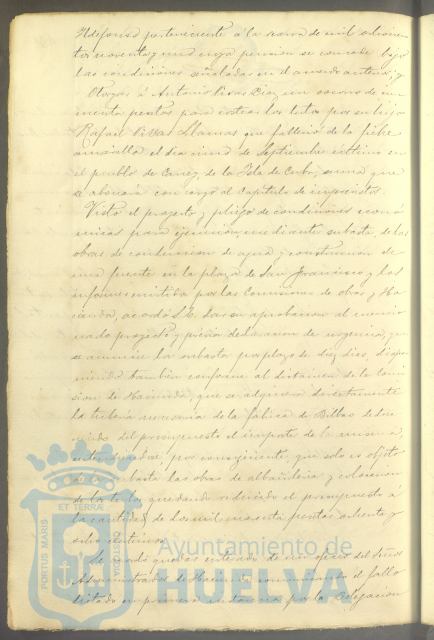 Ildefonso perteneciente a la reserva de mil ochocien-
tos noventa y uno cuya pension se concede bajo
las condiciones señaladas en el acuerdo anterior, y
Otorgar á Antonio Vivas Diaz un socorro de cin-
cuenta pesetas para costear los lutos por su hijo
Rafael Vivas Llamas que falleció de la fiebre
amarilla el dia uno de Septiembre último en
el pueblo de de la Isla de Cuba, suma que
se abonará con cargo al Capitulo de imprevistos.
Visto el proyecto y pliego de condiciones econó
micas para ejecucion, mediante subasta, de las
obras de conduccion de agua y construccion de
una fuente en la plaza de San Francisco y los
informes emitidos por las Comisiones de obras y Ha-
cienda, acordó S.E. dar su aprobacion al mencio
nado proyecto y previa declaracion de urgencia, que
se anuncie la subasta por plazo de diez dias, dispo
niendo tambien conforme al dictamen de la Comi
sion de Hacienda, que se adquiera directamente
la tuberia necesaria de la fabrica de Bilbao dedu
ciendo del presupuesto el importe de la misma,
entendiendose por consiguiente que solo es objeto
de la subasta las obras de albañileria y colocacion
de los tubos, quedando reducido el presupuesto á
la cantidad de dos mil pesetas ochenta y
ocho centimos.
Se acordó quedar enterado de un oficio del Señor
Administrador de Hacienda comunicando el fallo
dictado en primera instancia por la Delegacion
PORTUS MARIS
ET TERRÆ
CUSTODIA
Ayuntamiento de
HUELVA